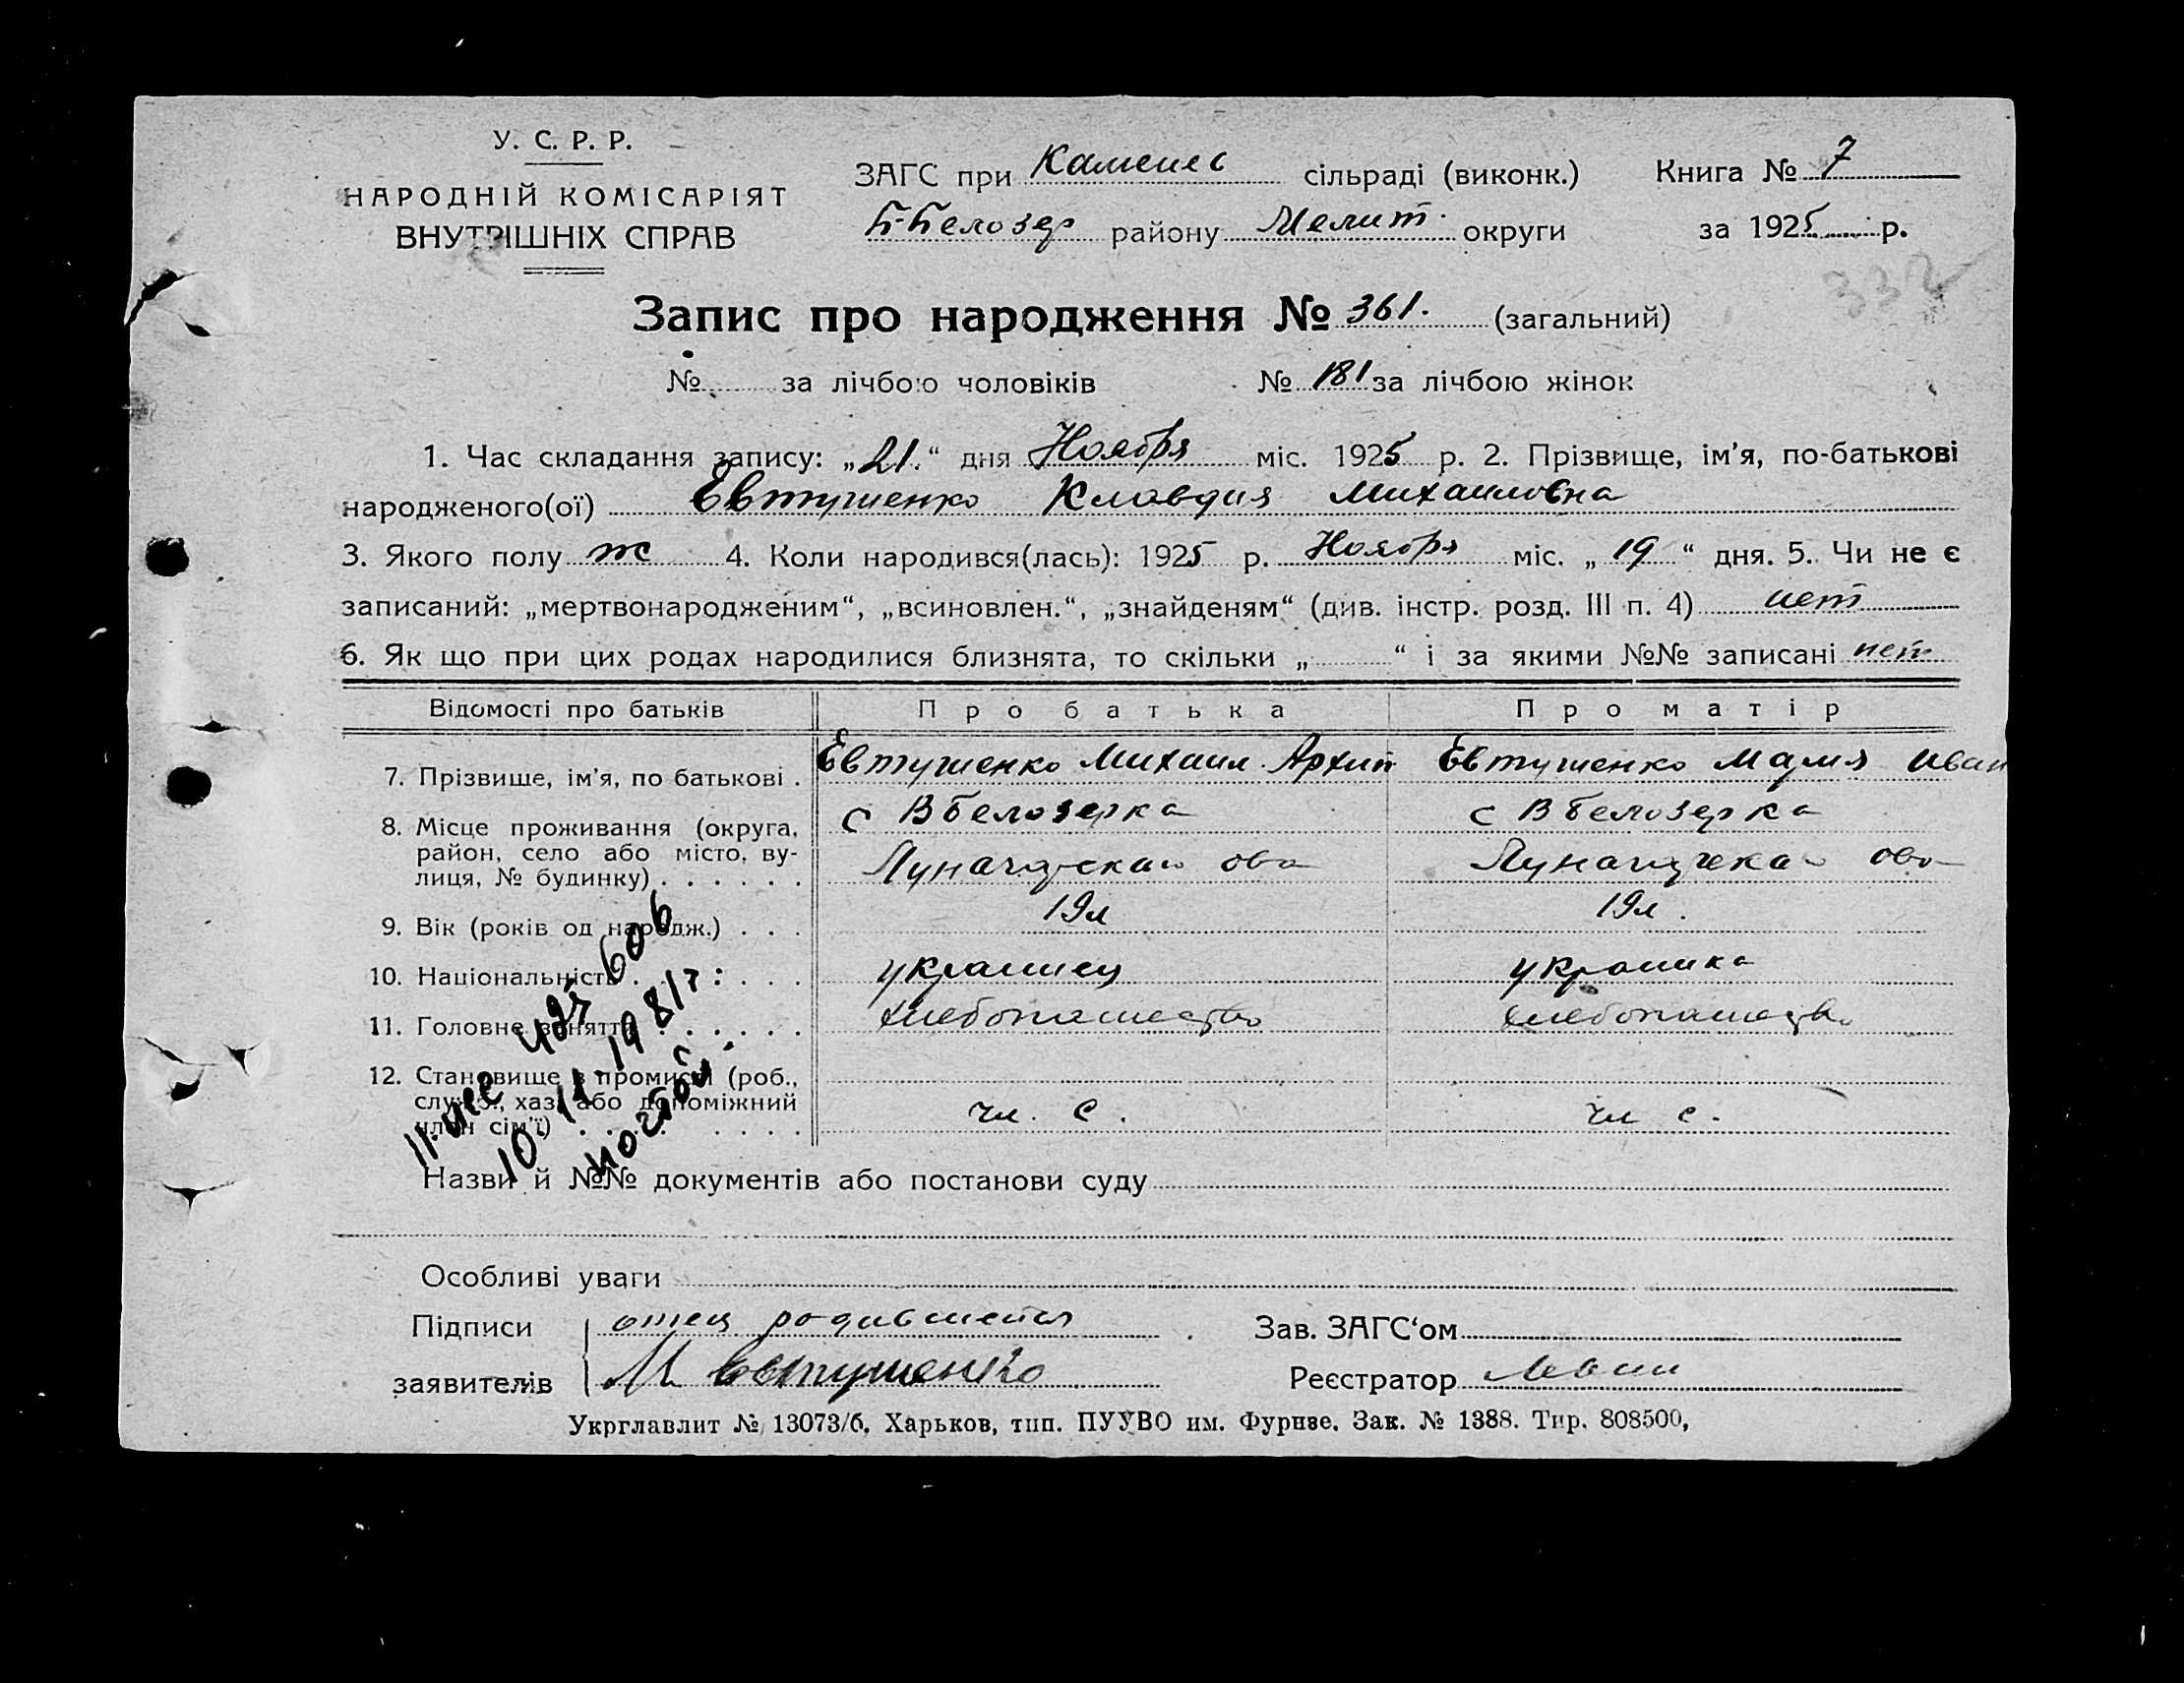 У. С. Р. Р.
НАРОДНІЙ КОМІСАРІЯТ
ВНУТРІШНІХ СПРАВ
ЗАГС при Каменс сільраді (виконк.) Книга № 7
Б-Белозер району Мелит. округи за 1925 р.
332
Запис про народження № 361. (загальний)
№ за лічбою чоловіків № 181 за лічбою жінок
1. Час складання запису: „21.“ дня Ноября міс. 1925 р. 2. Прізвище, ім’я, по-батькові
народженого(ої) Евтушенко Клавдия Михаиловна
3. Якого полу ж 4. Коли народився(лась): 1925 р. Ноября міс. „19“ дня. 5. Чи не є
записаний: „мертвонародженим“, „всиновлен.“, „знайденям“ (див. інстр. розд. III п. 4) нет
6. Як що при цих родах народилися близнята, то скільки „ “ і за якими №№ записані нет
Відомості про батьків Про батька Про матір
7. Прізвише, ім’я, по батькові . Евтушенко Михаил Архип Евтушенко Мария Иван
8. Місце проживання (округа, район, село або місто, ву- лиця, № будинку) . . . . . . с ВБелозерка с ВБелозерка
9. Вік (років од народж.) . . . 19л 19л.
10. Національність . . . . украинец украинка
11. Головне заняття . . . . . . хлебопашество хлебопашество
12. Становище в промислі (роб., служб., хаз. або допоміжний член сім’ї) . . . . чл. с. чл с.
10. 11. 1981 г.
Назви й №№ документів або постанови суду
Особливі уваги
Підписи отец родившейся Зав. ЗАГС‘ом
заявителів М Евтушенко Реєстратор
Укрглавлит № 13073/б, Харьков, тип. ПУУВО им. Фрунзе. Зак. № 1388. Тир. 808500,